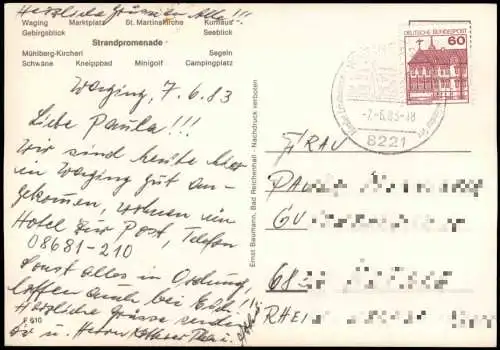 Herzliche Grüsse an Alle!!!
Waging Marktplatz St. Martinskirche Kurhaus
Gebirgsblick Seeblick
Strandpromenade
Mühlberg-Kircherl Segeln
Schwäne Kneippbad Minigolf Campingplatz
Waging, 7.6.83
Liebe Paula!!!
Wir sind heute hier
in Waging gut an-
gekommen, wohnen im
Hotel zur Post, Telefon
08681-210
Sonst alles in Ordnung,
hoffen auch bei Euch!!!
Herzliche Grüsse senden
u. Herrn
F 610
Ernst Baumann, Bad Reichenhall - Nachdruck verboten
DEUTSCHE BUNDESPOST
60
-7.-6.83-18
8221
FRAU
PA
GU
68
RHEI